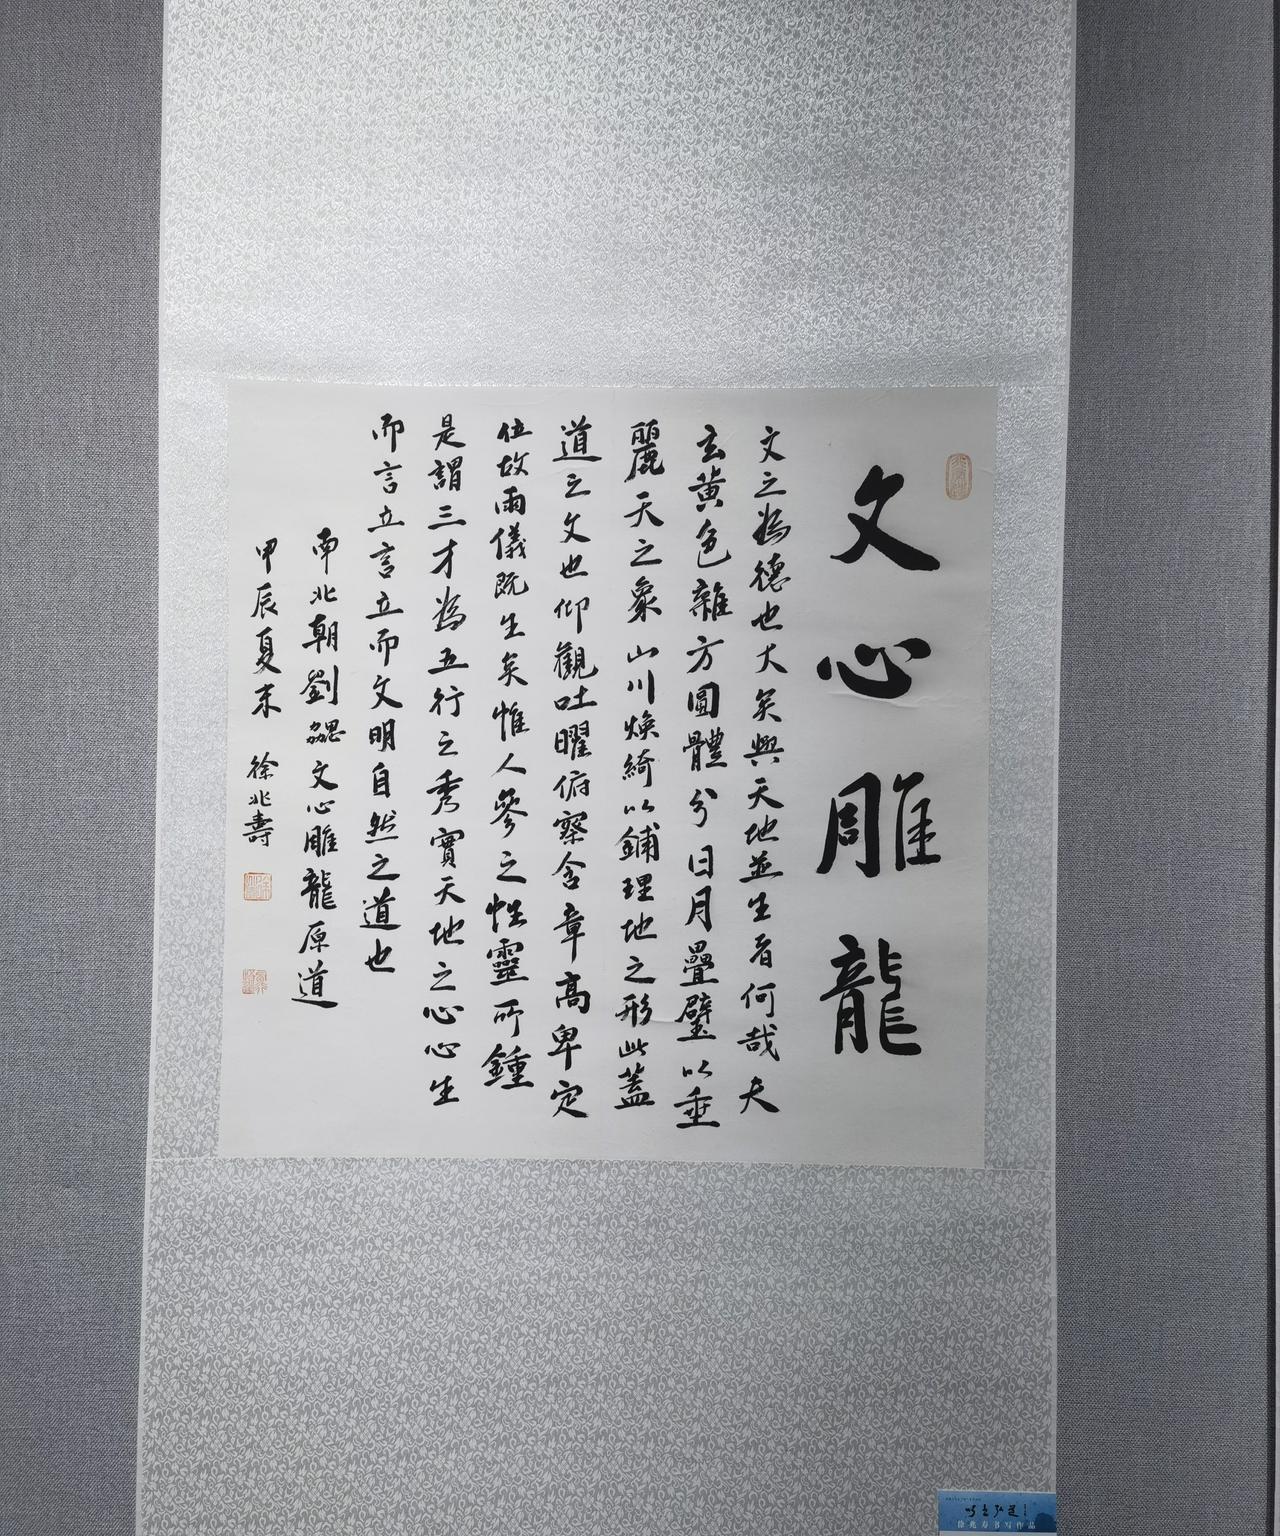 文心雕龍
文之為德也大矣與天地並生者何哉夫
玄黄色雜方圓體分日月疊璧以垂
麗天之象山川煥綺以鋪理地之形此蓋
道之文也仰觀吐曜俯察含章高卑定
位故兩儀既生矣惟人參之性靈所鍾
是謂三才為五行之秀實天地之心心生
而言立言立而文明自然之道也
南北朝劉勰文心雕龍原道
甲辰夏末 徐兆壽
徐兆寿书写作品